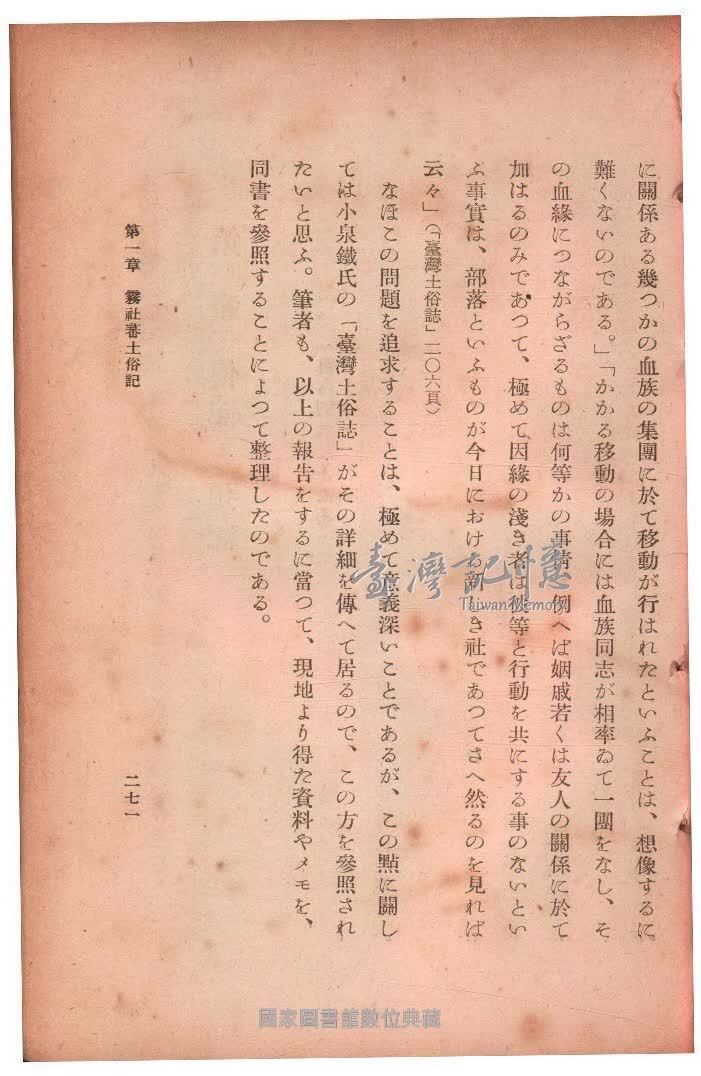 に關係ある幾つかの血族の集團に於て移動が行はれたといふことは、想像するに
難くないのである。」「かかる移動の場合には血族同志が相率ゐて一團をなし、そ
の血緣につながらざるものは何等かの事情、例へば姻戚若くは友人の關係に於て
加はるのみであつて、極めて因緣の淺き者は彼等と行動を共にする事のないとい
ふ事實は、部落といふものが今日における新しき社であつてさへ然るのを見れば
云々」(「臺灣土俗誌」二〇六頁)
なほこの問題を追求することは、極めて意義深いことであるが、この點に關し
ては小泉鐵氏の「臺灣土俗誌」がその詳細を傳へて居るので、この方を參照され
たいと思ふ。筆者も、以上の報告をするに當つて、現地より得た資料やメモを、
同書を參照することによつて整理したのである。
第一章 霧社蕃土俗記
二七一
臺灣記憶
Taiwan Memory
國家圖書館數位典藏